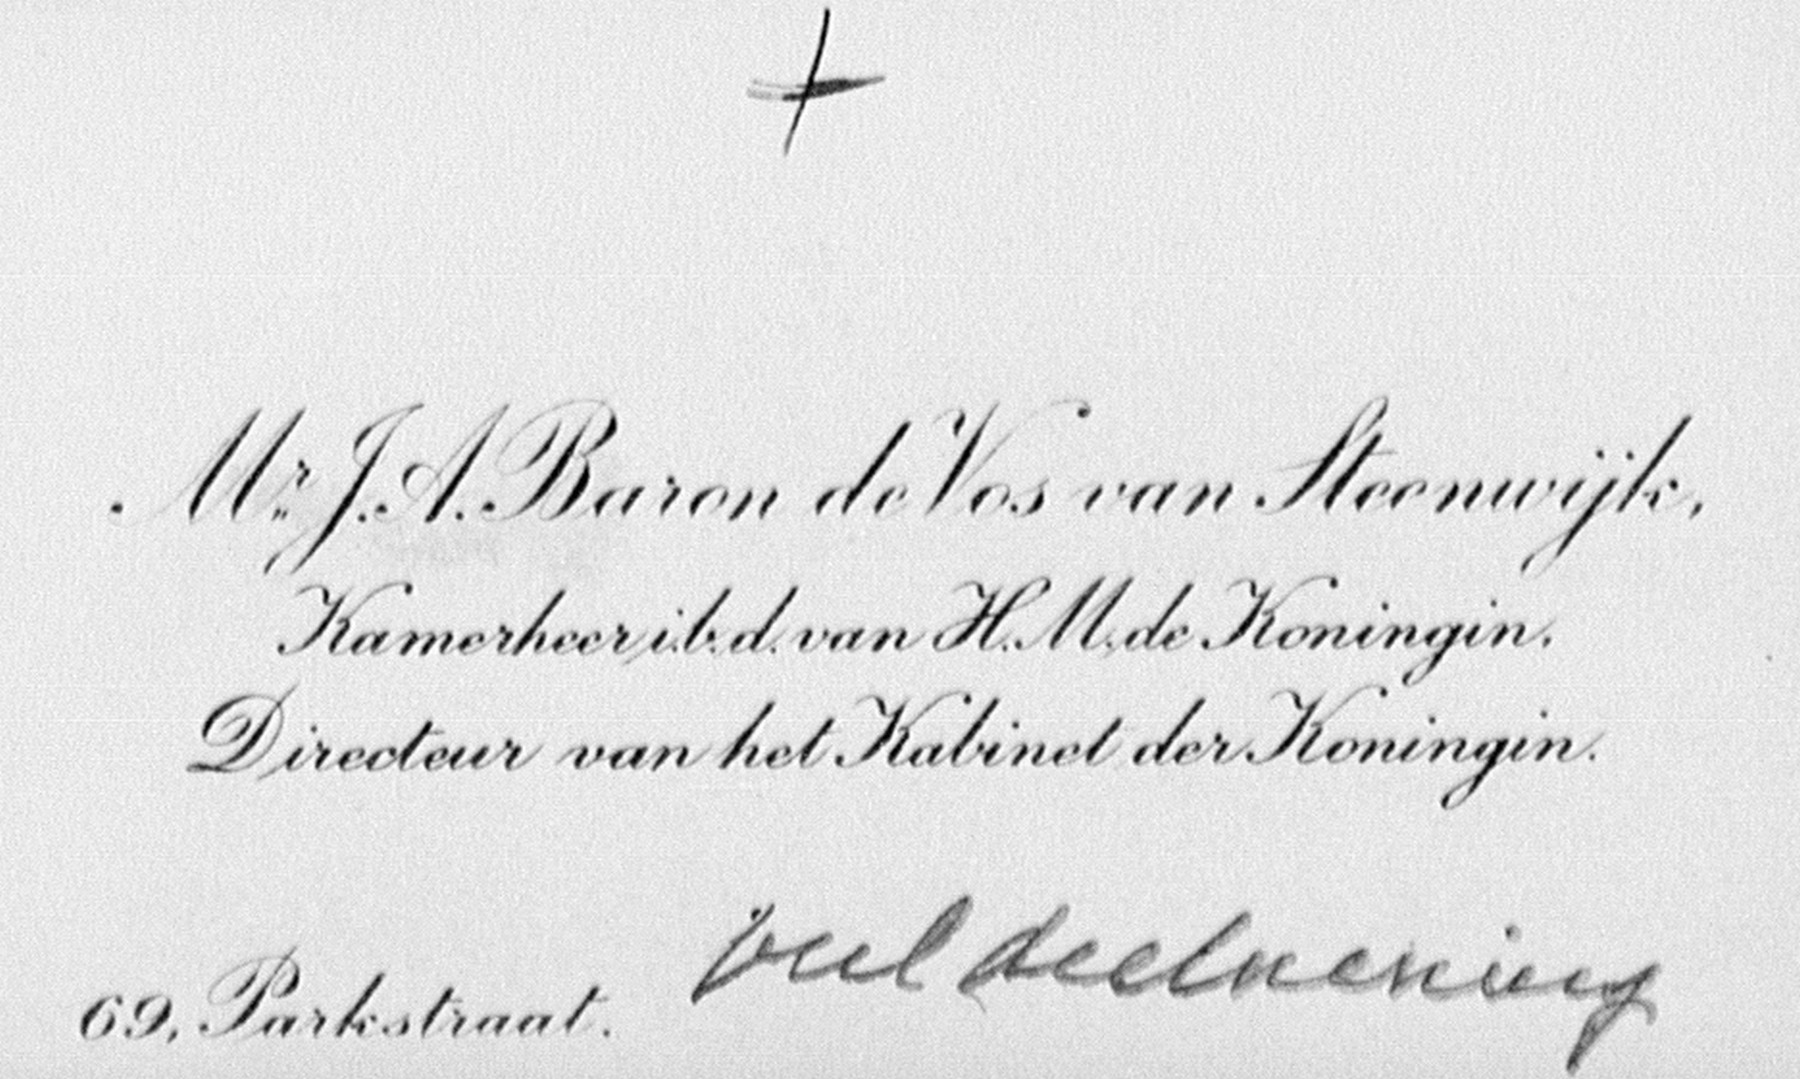 Mr. J. A. Baron de Vos van Steenwijk,
Kamerheer i.b.d. van H. M. de Koningin.
Directeur van het Kabinet der Koningin.
veel deelneming
69, Parkstraat.